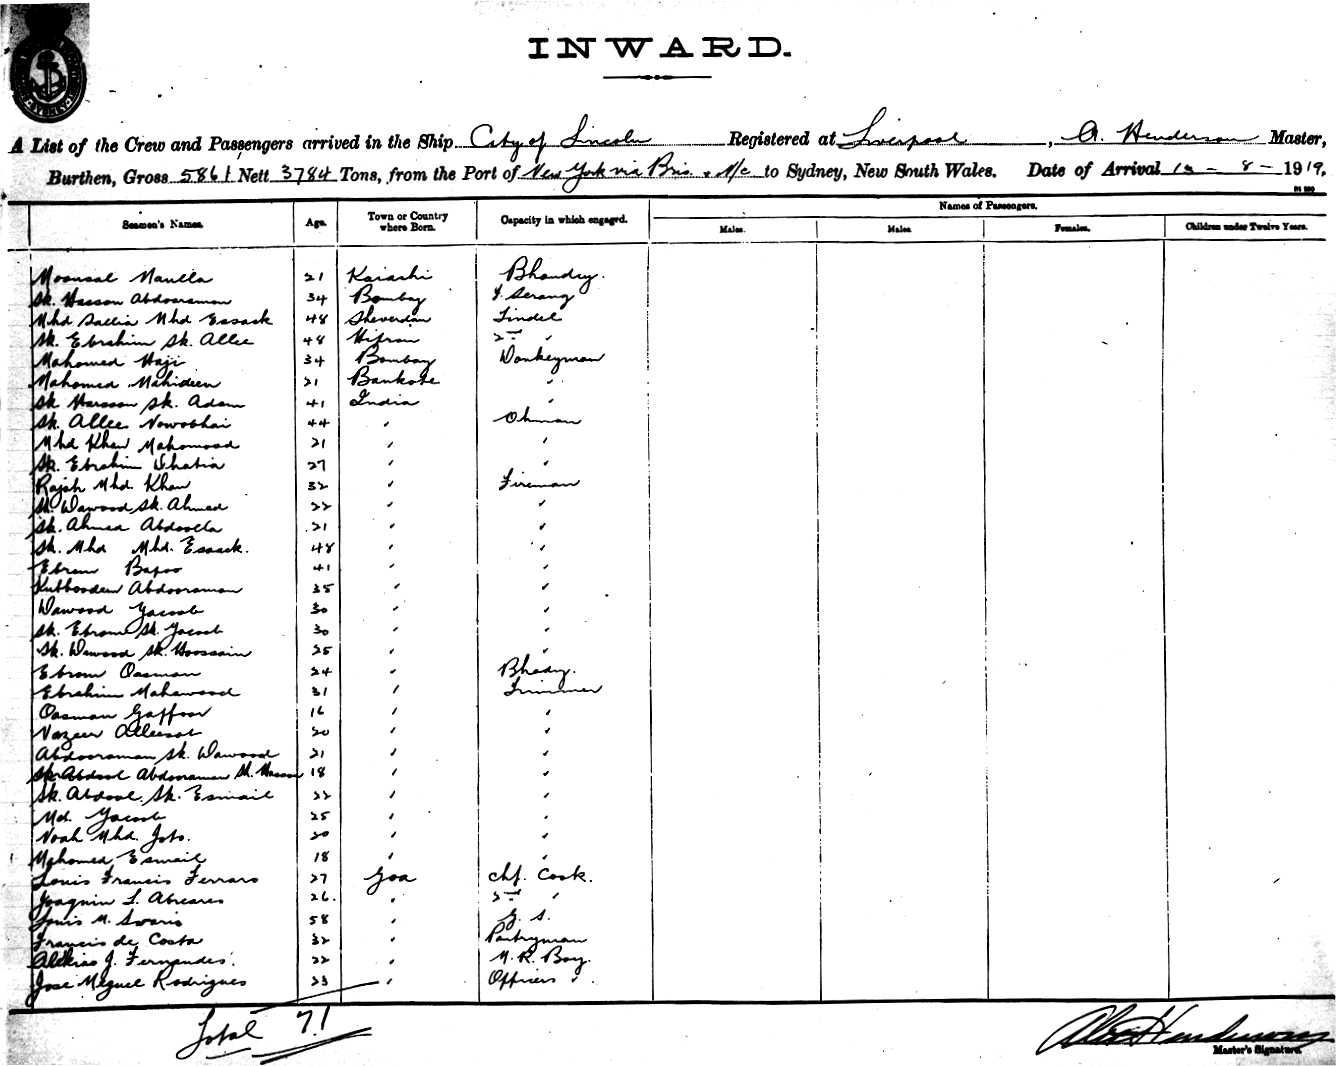 INWARD.
A List of the Crew and Passengers arrived in the Ship City of Lincoln Registered at Liverpool, A. Henderson Master,
Burthen, Gross 5861 Nett 3784 Tons, from the Port of New York via Bris. & N/c to Sydney, New South Wales. Date of Arrival - 8 - 1919.
Names of Passengers.
Seamen's Names. Age. Town or Country where Born. Capacity in which engaged. Males. Males. Females. Children under Twelve Years.
Moonsal Naulla 21 Karachi Bhandry.
Sk. Hassan Abdooraman 34 Bombay Serang
Mhd Sallia Mhd Essack 48 Sheverdan Tindel
Sk. Ebrahim Sk. Allee 48 2nd "
Mahomed Haji 34 Bombay Donkeyman
Mahomed Mahideen 21 Bankote "
Sk Hassan Sk. Adam 41 India "
Sk. Allee Nowobhai 44 " Oilman
Mhd Khan Mahomood 21 " "
Sk. Ebrahim 27 " "
Rajah Mhd. Khan 32 " Fireman
Sk. Dawood Sk. Ahmed 22 " "
Sk. Ahmed Abdoolla 21 " "
Sk. Mhd Mhd. Essack. 48 " "
Ebram Bapoo 41 " "
Kutbooden Abdooraman 35 " "
Dawood Yacoob 30 " "
Sk. Ebram Sk. Yacoob 30 " "
Sk. Dawood Sk. Hoossain 25 " "
Ebram Oosman 24 " Bhady.
Ebrahim Mahawood 31 " Trimmer
Oosman Gaffoor 16 " "
Nazeer 20 " "
Abdooraman Sk. Dawood 21 " "
Sk. Abdool Abdooraman Sk. Hassan 18 " "
Sk. Abdool Sk. Esmail 22 " "
Md. Yacoob 25 " "
Noah Mhd. 20 " "
Mahomed Esmail 18 " "
Louis Francis Ferraro 27 Goa Chf. Cook.
Joaquin L. Abreares 26. " 2nd "
Louis M. Soaris 58 " G. S.
Francis de Costa 32 " Pantryman
J. Fernandes. 22 " M. R. Boy.
Jose Meguel Rodrigues 23 " Officers ".
Total 71
Alex Henderson
Master's Signature.